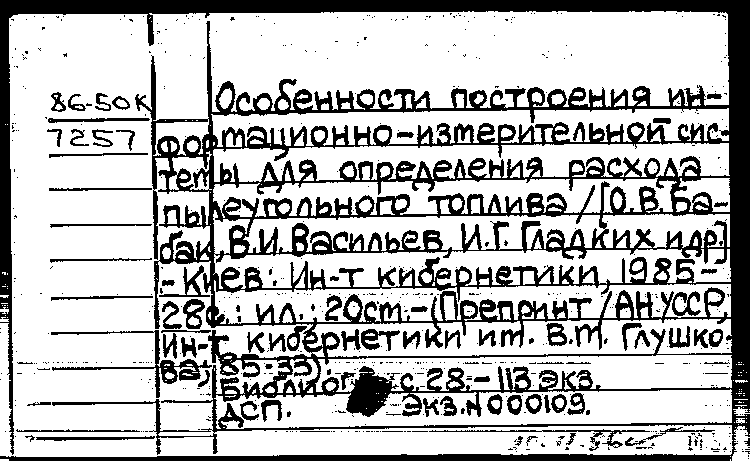 86-50К
7257
Особенности построения ин-
формационно-измерительной сис-
темы для определения расхода
пылеугольного топлива /[О.В.Ба-
бак, В.И.Васильев, И.Г. Гладких и др.]
- Киев: Ин-т кибернетики, 1985-
28с.: ил.; 20ст.-(Препринт /АН УССР,
Ин-т кибернетики им. В.М. Глушко-
ва; 85-33).
Библиогр. с. 28.- 113 экз.
ДСП. Экз.N000109.